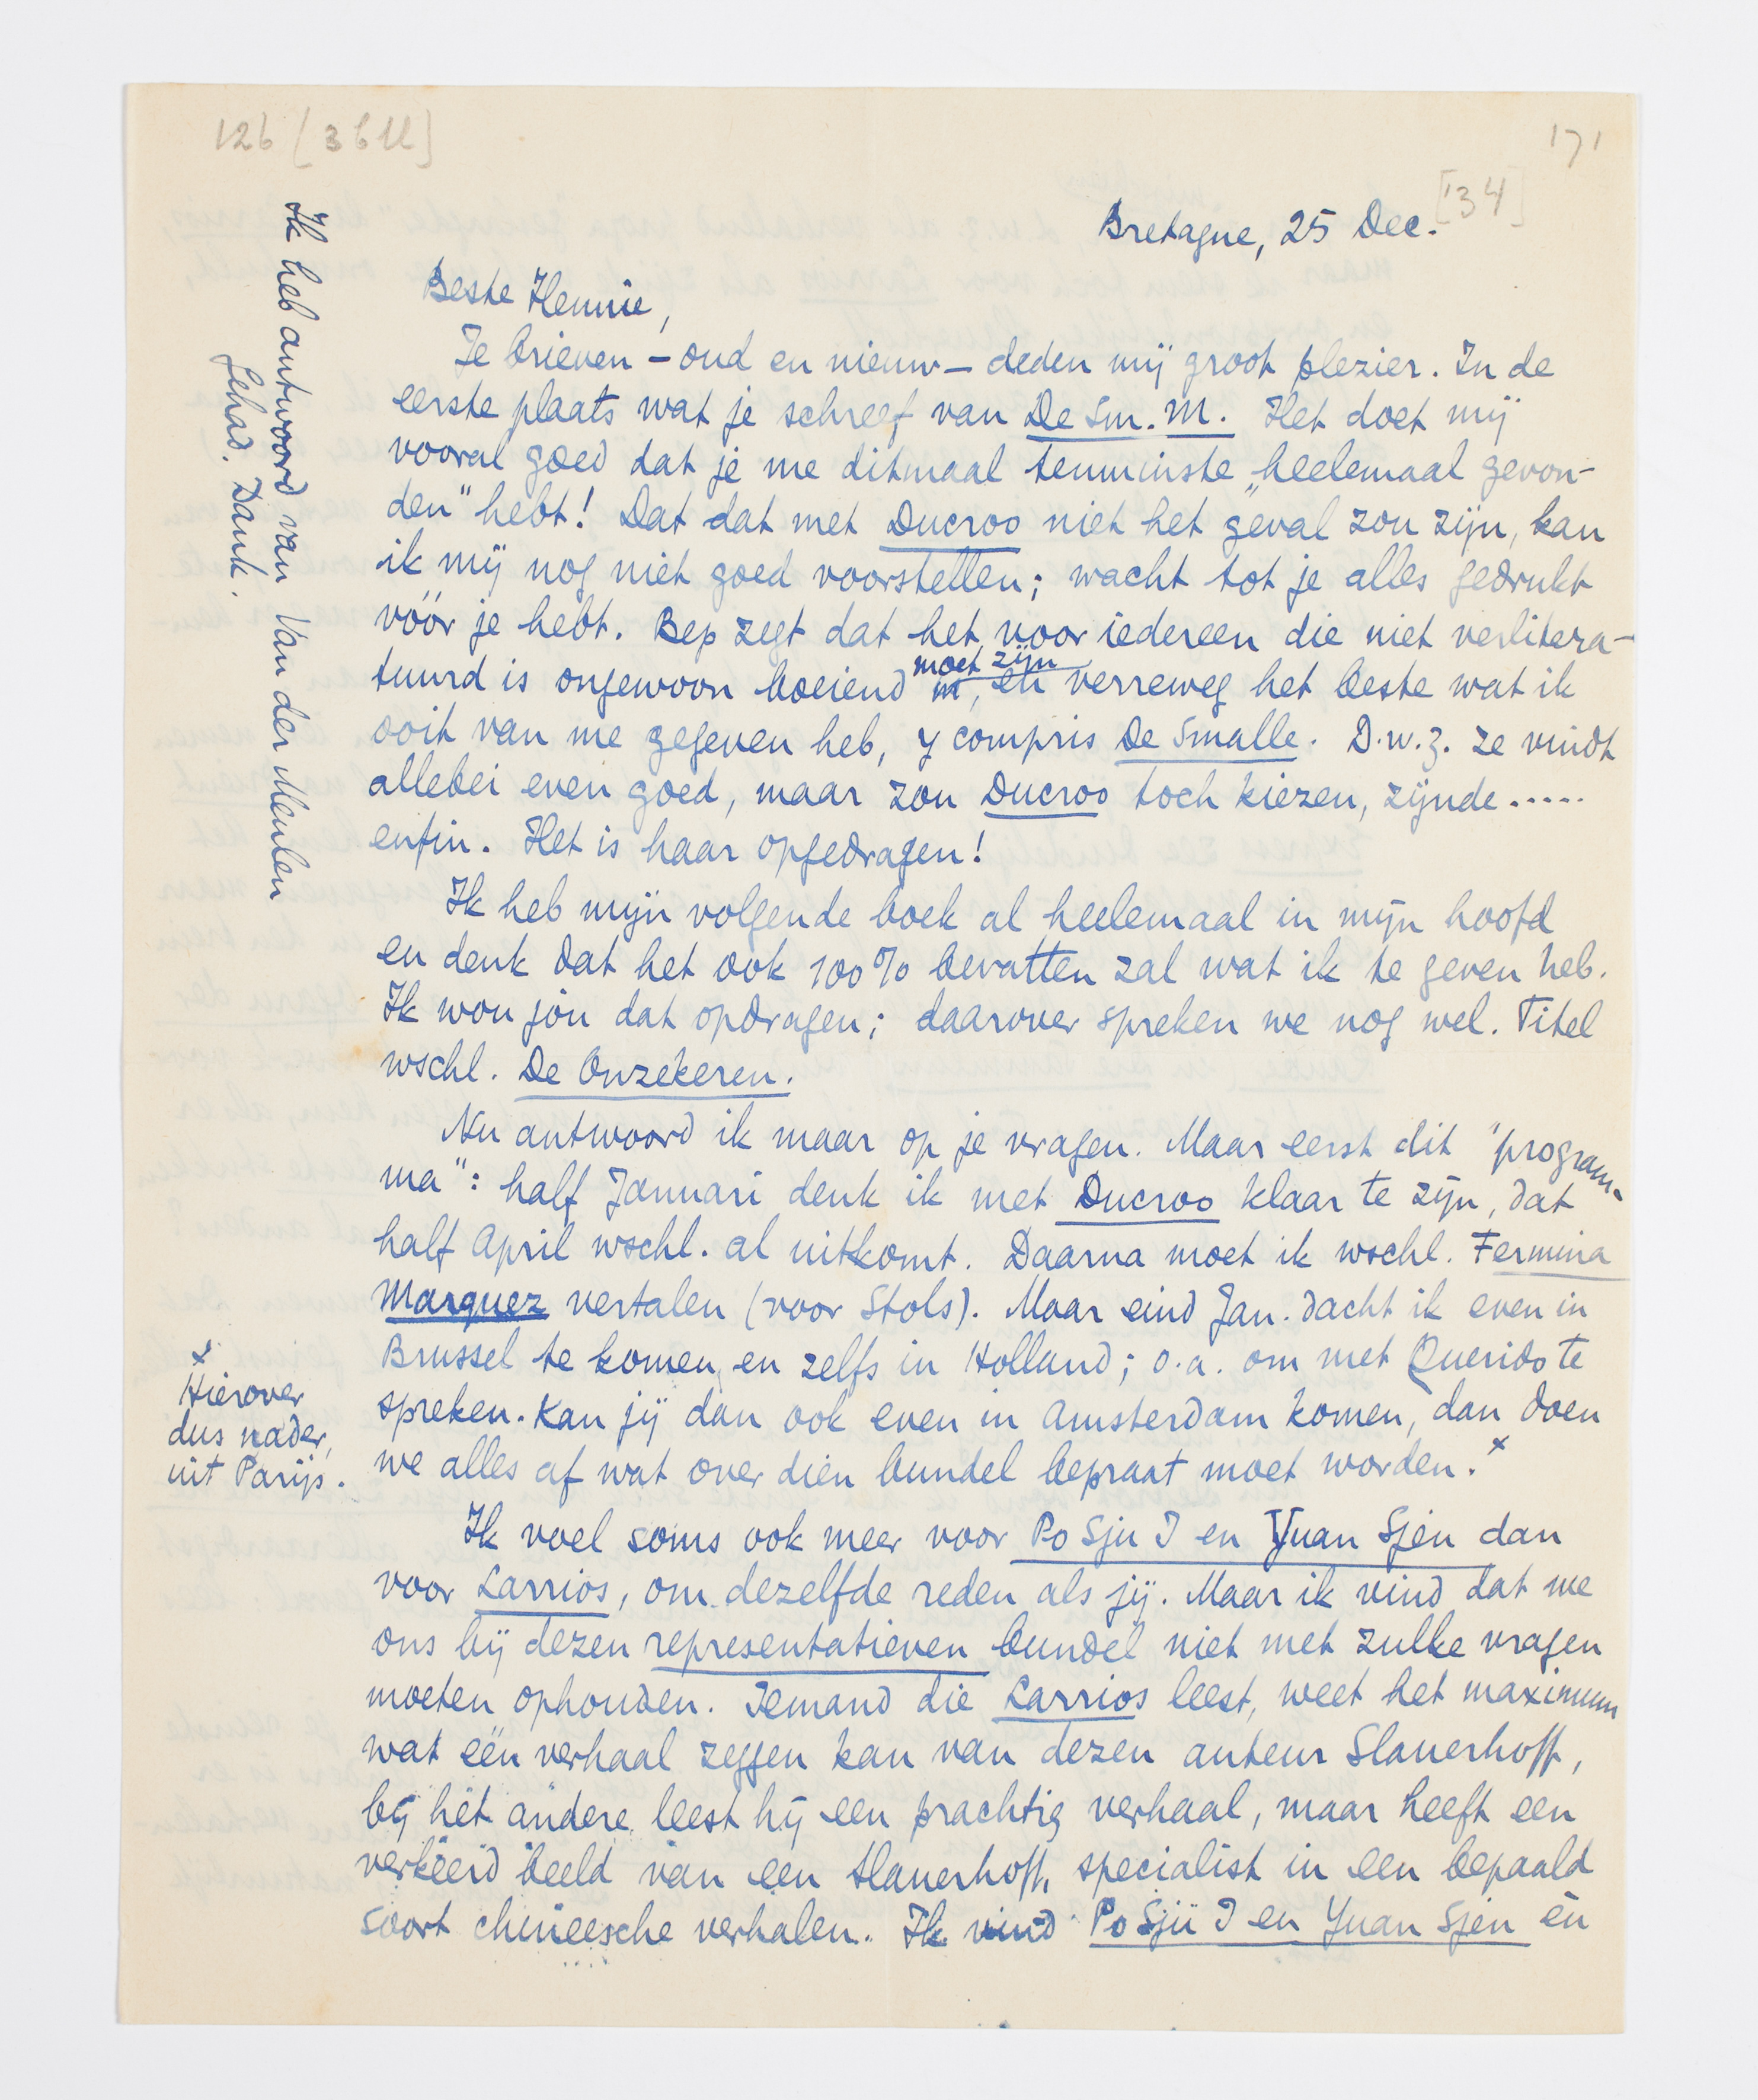 126 [3611]
171
['34]
Bretagne, 25 Dec.
Beste Hennie,
Je brieven – oud en nieuw – deden mij groot plezier. In de
eerste plaats wat je schreef van De Sm. M. Het doet mij
vooral goed dat je me ditmaal tenminste „heelemaal gevon-
den" hebt! Dat dat met Ducroo niet het geval zou zijn, kan
ik mij nog niet goed voorstellen; wacht tot je alles gedrukt
vóór je hebt. Bep zegt dat het voor iedereen die niet verlitera-
tuurd is ongewoon boeiend moet zijn, en verreweg het beste wat ik
ooit van me gegeven heb, y compris De Smalle. D.w.z. ze vindt
allebei even goed, maar zou Ducroo toch kiezen, zijnde.....
enfin. Het is haar opgedragen!
Ik heb mijn volgende boek al heelemaal in mijn hoofd
en denk dat het ook 100% bevatten zal wat ik te geven heb.
Ik wou jóu dat opdragen; daarover spreken we nog wel. Titel
wschl. De Onzekeren.
Nu antwoord ik maar op je vragen. Maar eerst dit "program-
ma": half Januari denk ik met Ducroo klaar te zijn, dat
half April wschl. al uitkomt. Daarna moet ik wschl. Fermina
Marquez vertalen (voor Stols). Maar eind Jan. dacht ik even in
Brussel te komen, en zelfs in Holland; o.a. om met Querido te
spreken. Kan jij dan ook even in Amsterdam komen, dan doen
we alles af wat over dien bundel bepraat moet worden. x
Ik voel soms ook meer voor Po Sju I en Yuan Sjen dan
voor Larrios, om dezelfde reden als jij. Maar ik vind dat we
ons bij dezen representatieven bundel niet met zulke vragen
moeten ophouden. Iemand die Larrios leest, weet het maximum
wat één verhaal zeggen kan van dezen auteur Slauerhoff,
bij hèt andere leest hij een prachtig verhaal, maar heeft een
verkeerd beeld van een Slauerhoff, specialist in een bepaald
soort chineesche verhalen. Ik vind Po Sjü I en Yuan Sjen èn
x
Hierover
dus nader,
uit Parijs.
Ik heb antwoord van Van der Meulen
gehad. Dank.